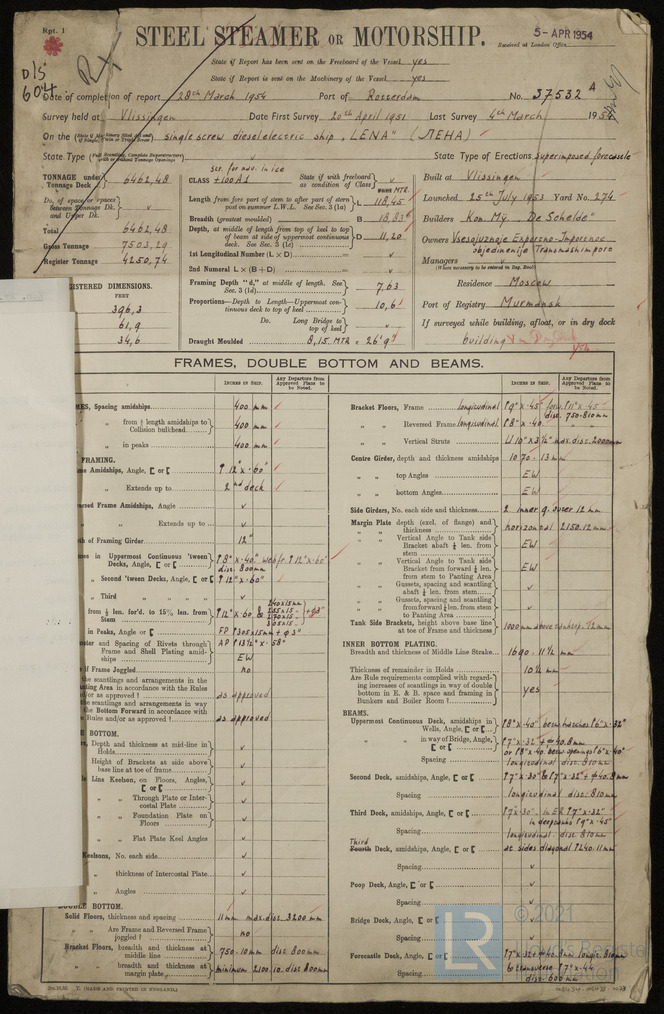 Rpt. 1
STEEL STEAMER OR MOTORSHIP.
5- APR 1954
Received at London Office
State if Report has been sent on the Freeboard of the Vessel yes
State if Report is sent on the Machinery of the Vessel yes
Date of completion of report 28th March 1954 Port of Rotterdam No. 37532 A
Survey held at Vlissingen Date First Survey 20th April 1951 Last Survey 4th March 195
On the single screw dieselelectric ship "LENA" (ЛЕНА)
State Type State Type of Erections superimposed forecastle
TONNAGE under Tonnage Deck 6462,48
Do. of space or spaces between Tonnage Dk. and Upper Dk. v
Total 6462,48
Gross Tonnage 7503,29
Register Tonnage 4250,74
REGISTERED DIMENSIONS.
FEET
396,3
61,9
34,6
scr. for nav. in ice
CLASS +100A1 State if with freeboard as condition of Class v
Length from fore part of stem to after part of stern post on summer L.W.L. See Sec. 3 (1a) L 118,45
Breadth (greatest moulded) B 18,83
Depth, at middle of length from top of keel to top of beam at side of uppermost continuous deck. See Sec. 3 (1c) D 11,20
1st Longitudinal Number (L × D) v
2nd Numeral L × (B + D) v
Framing Depth "d," at middle of length. See Sec. 3 (1d) 7,63
Proportions—Depth to Length—Uppermost continuous deck to top of keel 10,6
Do. Long Bridge to top of keel v
Draught Moulded 8,15 MTR = 26'9"
Built at Vlissingen
Launched 25th July 1953 Yard No. 274
Builders Kon. My. "De Schelde"
Owners Vsesojuznoje Exportno-Importnoe objedinenije Transmashimport
Managers
(Where necessary to be entered in Reg. Book)
Residence Moscow
Port of Registry Murmansk
If surveyed while building, afloat, or in dry dock
building
FRAMES, DOUBLE BOTTOM AND BEAMS.
INCHES IN SHIP.
Any Departure from Approved Plans to be Noted.
INCHES IN SHIP.
Any Departure from Approved Plans to be Noted.
MES, Spacing amidships 400 mm
" from ⅕ length amidships to Collision bulkhead 400 mm
" in peaks 400 mm
FRAMING.
me Amidships, Angle, [ or [ 12" x .60"
" Extends up to 2nd deck
ersed Frame Amidships, Angle v
" Extends up to v
th of Framing Girder 12"
mes in Uppermost Continuous 'tween Decks, Angle, [ or [ 8" x .40" webfr. 12" x .60" disc. 800mm
" Second 'tween Decks, Angle, [ or [ 12" x .60"
" Third " " " v
from ⅕ len. for'd. to 15% len. from Stem 12" x .60 &
in Peaks, Angle or [ FP 305x15mm + φ3"
AP 13½" x .58"
meter and Spacing of Rivets through Frame and Shell Plating amidships EW
if Frame Joggled no
the scantlings and arrangements in the nting Area in accordance with the Rules and/or as approved? as approved
the scantlings and arrangements in way the Bottom Forward in accordance with Rules and/or as approved? as approved
E BOTTOM.
rs, Depth and thickness at mid-line in Holds v
Height of Brackets at side above base line at toe of frame v
le Line Keelson, on Floors, Angles, [ or [ v
" " Through Plate or Intercostal Plate v
" " Foundation Plate on Floors v
" " Flat Plate Keel Angles v
Keelsons, No. each side v
" thickness of Intercostal Plate v
" Angles v
DOUBLE BOTTOM.
Solid Floors, thickness and spacing 11mm max. disc. 3200 mm
" Are Frame and Reversed Frame joggled? no
Bracket Floors, breadth and thickness at middle line 750-10mm disc 800mm
" breadth and thickness at margin plate minimum 2100.10 disc 800mm
Bracket Floors, Frame longitudinal 9" x .45"
disc. 750-810mm
" " Reversed Frame longitudinal 8" x .40
" " Vertical Struts 10" x 3½" max disc. 2000mm
Centre Girder, depth and thickness amidships 1070 - 13 mm
" top Angles EW
" bottom Angles EW
Side Girders, No. each side and thickness 2 inner 9. outer 12 mm
Margin Plate depth (excl. of flange) and thickness horizontal 2150.12mm
" Vertical Angle to Tank side Bracket abaft ¼ len. from stem EW
" Vertical Angle to Tank side Bracket from forward ¼ len. from stem to Panting Area EW
" Gussets, spacing and scantling abaft ¼ len. from stem v
" Gussets, spacing and scantling from forward ¼ len. from stem to Panting Area v
Tank Side Brackets, height above base line at toe of Frame and thickness
INNER BOTTOM PLATING.
Breadth and thickness of Middle Line Strake 1690 - 11½ mm
Thickness of remainder in Holds 10½ mm
Are Rule requirements complied with regarding increases of scantlings in way of double bottom in E. & B. space and framing in Bunkers and Boiler Room? yes
BEAMS.
Uppermost Continuous Deck, amidships in Wells, Angle, [ or [ 8" x .40" betw. hatches 6" x .32"
" in way of Bridge, Angle, [ or [ 7" x .32" + φ 40.8mm
or 8" x .40 betw. openings 6" x .40"
Spacing longitudinal disc. 810mm
Second Deck, amidships, Angle, [ or [ 7" x .30" & 7" x .32" + φ 40.8mm
Spacing longitudinal disc. 810mm
Third Deck, amidships, Angle, [ or [ 7" x .30" in ER 7" x .32"
in deeptanks 9" x .45"
Spacing longitudinal disc 810mm
Third
Fourth Deck, amidships, Angle, [ or [ at sides diagonal 240.11mm
Spacing v
Poop Deck, Angle, [ or [ v
Spacing v
Bridge Deck, Angle, [ or [
Spacing
Forecastle Deck, Angle, [ or [ 7" x .32" + φ 40.8mm longit. 810mm
& transverse 7" x .44
Spacing disc. 600mm
LR
© 2021
Lloyd's Register
Foundation
(MADE AND PRINTED IN ENGLAND.)